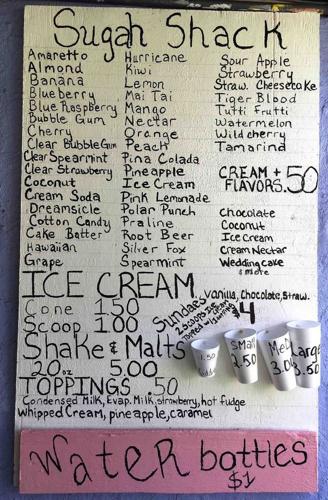 Sugah Shack
Amaretto
Almond
Banana
Blueberry
Blue Raspberry
Bubble Gum
Cherry
Clear Bubble Gum
Clear Spearmint
Clear Strawberry
Coconut
Cream Soda
Dreamsicle
Cotton Candy
Cake Batter
Hawaiian
Grape
Hurricane
Kiwi
Lemon
Mai Tai
Mango
Nectar
Orange
Peach
Pina Colada
Pineapple
Ice Cream
Pink Lemonade
Polar Punch
Praline
Root Beer
Silver Fox
Spearmint
Sour Apple
Strawberry
Straw. Cheesecake
Tiger Blood
Tutti Frutti
Watermelon
Wild cherry
Tamarind
CREAM + .50
FLAVORS
Chocolate
Coconut
Ice Cream
Cream Nectar
Wedding cake
& more
ICE CREAM Vanilla, Chocolate, Straw.
Cone 1.50
Scoop 1.00
Sundaes $4
2 scoops
Topped
Shake & Malts
20oz 5.00
1.50
Small
2.50
Med
3.0
Large
3.50
TOPPINGS .50
Condensed Milk, Evap. Milk, Strawberry, hot fudge
Whipped Cream, pineapple, caramel
Water bottles
$1